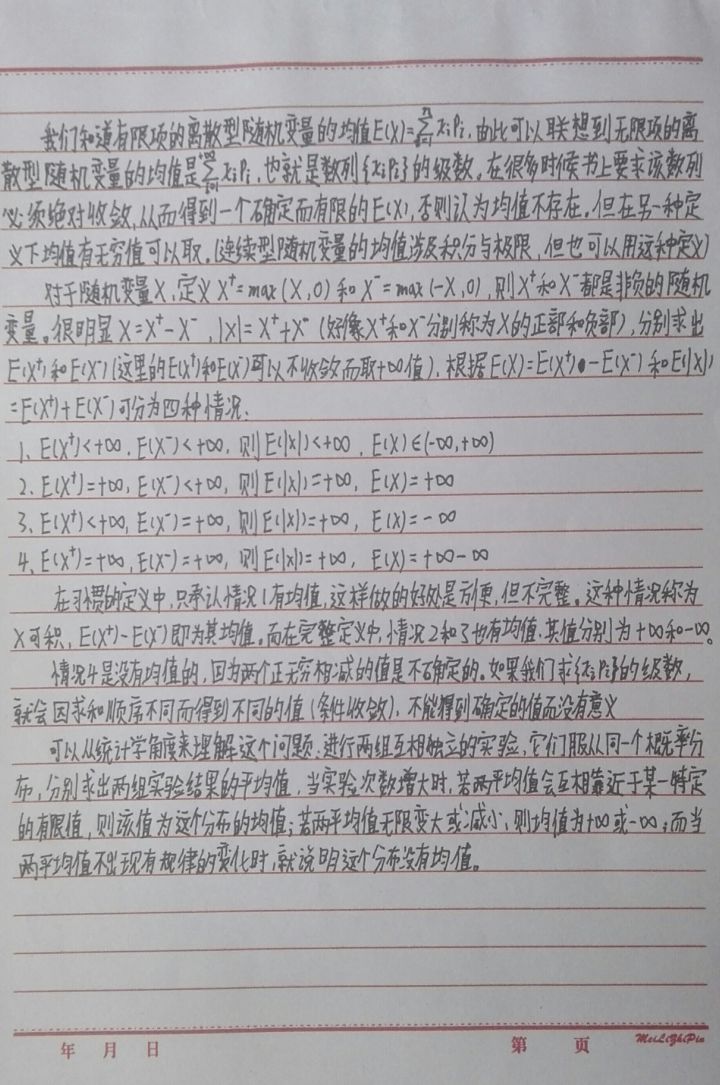 我们知道有限项的离散型随机变量的均值E(X)=∑ⁿᵢ₌₁xᵢPᵢ,由此可以联想到无限项的离
散型随机变量的均值是∑⁺∞ᵢ₌₁xᵢPᵢ,也就是数列{xᵢPᵢ}的级数。在很多时候书上要求该数列
必须绝对收敛,从而得到一个确定而有限的E(X),否则认为均值不存在。但在另一种定
义下均值有无穷值可以取。(连续型随机变量的均值涉及积分与极限,但也可以用这种定义)
对于随机变量X,定义X⁺=max(X,0)和X⁻=max(-X,0),则X⁺和X⁻都是非负的随机
变量。很明显X=X⁺-X⁻,|X|=X⁺+X⁻(好像X⁺和X⁻分别称为X的正部和负部),分别求出
E(X⁺)和E(X⁻)(这里的E(X⁺)和E(X⁻)可以不收敛而取+∞值),根据E(X)=E(X⁺)-E(X⁻)和E(|X|)
=E(X⁺)+E(X⁻)可分为四种情况:
1、E(X⁺)<+∞,E(X⁻)<+∞,则E(|X|)<+∞,E(X)∈(-∞,+∞)
2、E(X⁺)=+∞,E(X⁻)<+∞,则E(|X|)=+∞,E(X)=+∞
3、E(X⁺)<+∞,E(X⁻)=+∞,则E(|X|)=+∞,E(X)=-∞
4、E(X⁺)=+∞,E(X⁻)=+∞,则E(|X|)=+∞,E(X)=+∞-∞
在习惯的定义中,只承认情况1有均值,这样做的好处是方便,但不完整。这种情况称为
X可积,E(X⁺)-E(X⁻)即为其均值。而在完整定义中,情况2和3也有均值,其值分别为+∞和-∞。
情况4是没有均值的,因为两个正无穷相减的值是不确定的。如果我们求{xᵢPᵢ}的级数,
就会因求和顺序不同而得到不同的值(条件收敛),不能得到确定的值而没有意义
可以从统计学角度来理解这个问题:进行两组互相独立的实验,它们服从同一个概率分
布,分别求出两组实验结果的平均值,当实验次数增大时,若两平均值会互相靠近于某一特定
的有限值,则该值为这个分布的均值;若两平均值无限变大或减小,则均值为+∞或-∞;而当
两平均值不出现有规律的变化时,就说明这个分布没有均值。
年 月 日 第 页 MeiLiZhiPin